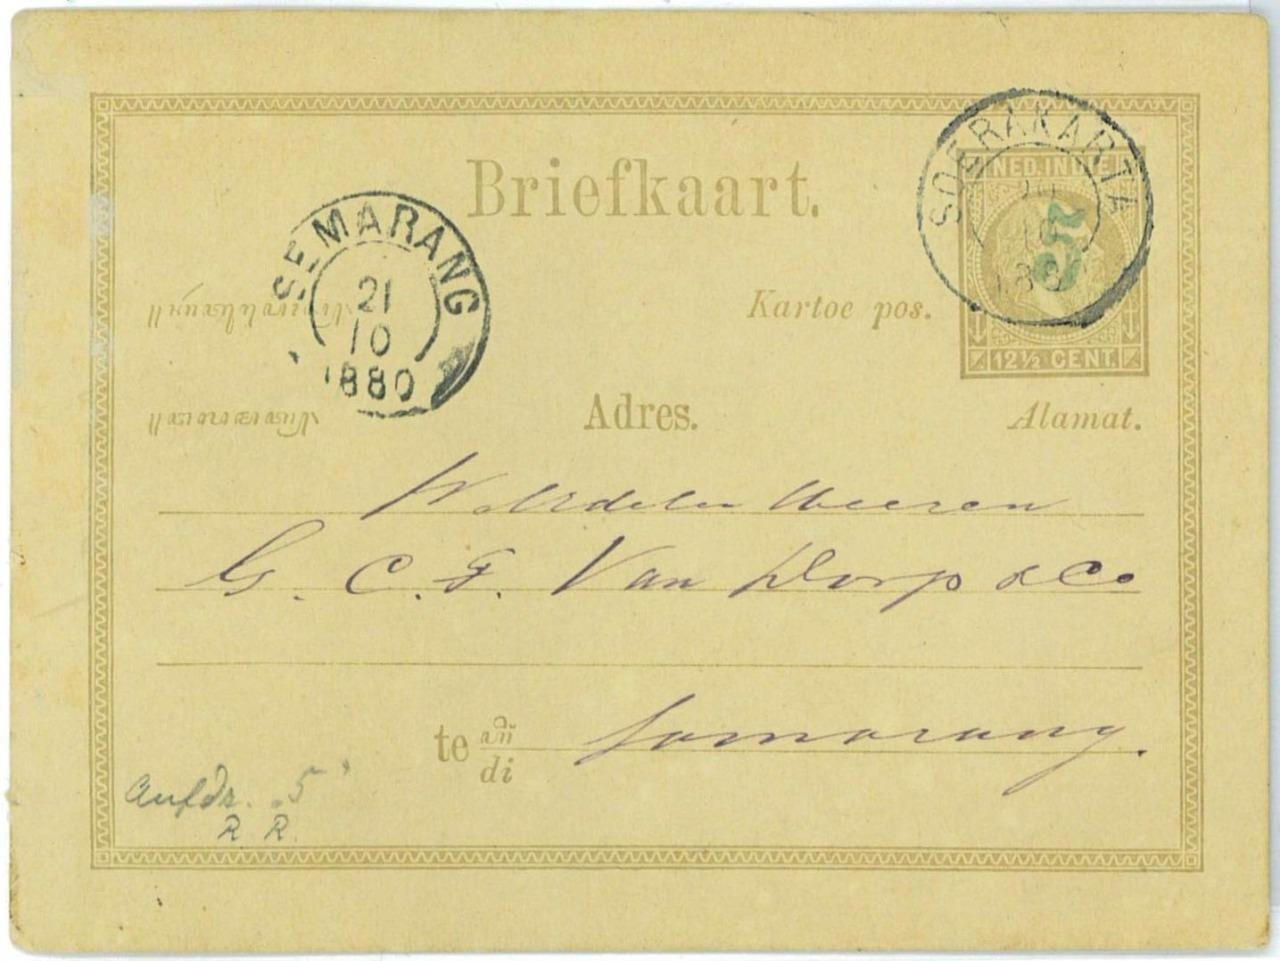 Briefkaart.
SOERAKARTA
10
188
NED. INDIE
12½ CENT.
SEMARANG
21
10
1880
Kartoe pos.
Adres.
Alamat.
WelEdelen Heeren
G. C. F. Van Dorp & Co
te di
Samarang.
Aufdr. 5
R R.